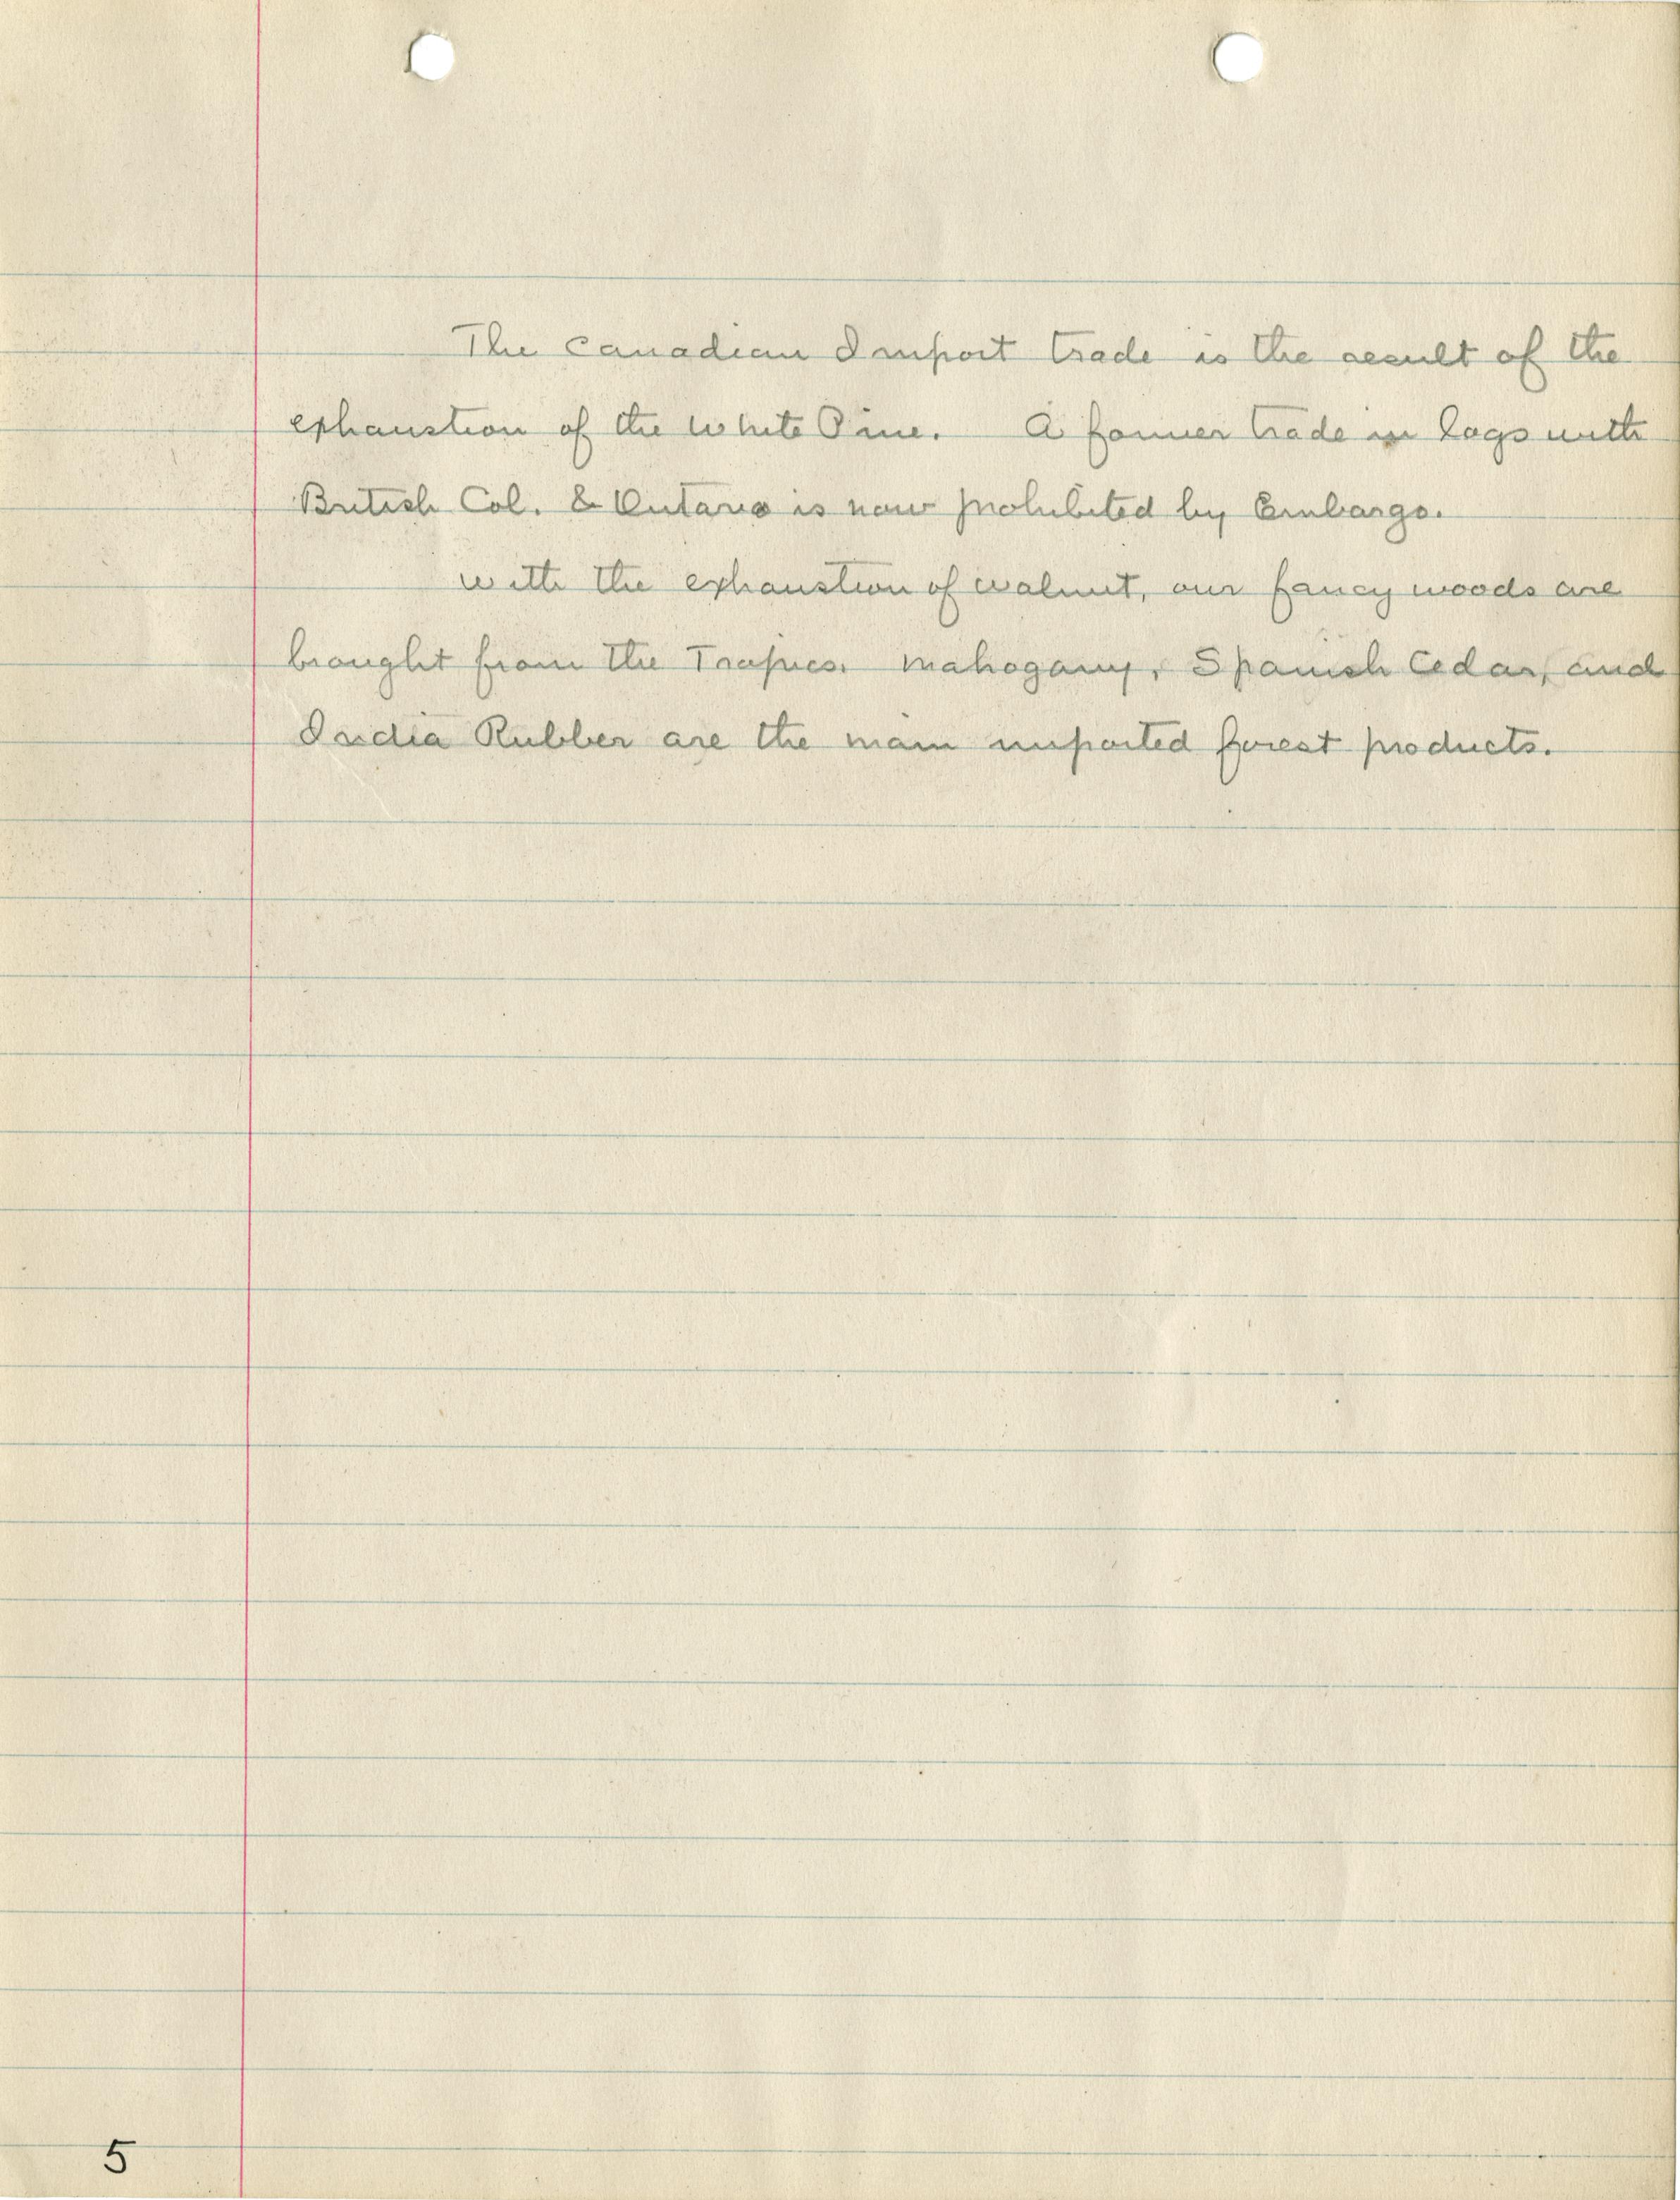 The Canadian Import trade is the result of the
exhaustion of the White Pine. A former trade in logs with
British Col. & Ontario is now prohibited by Embargo.
With the exhaustion of walnut, our fancy woods are
brought from the Tropics. Mahogany, Spanish Cedar, and
India Rubber are the main imported forest products.
5